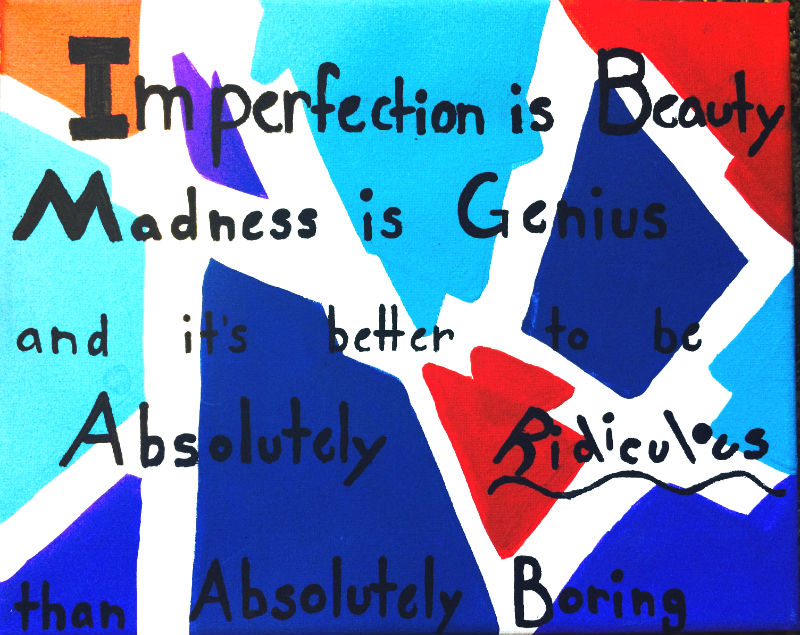 Imperfection is Beauty
Madness is Genius
and it's better to be
Absolutely Ridiculous
than Absolutely Boring